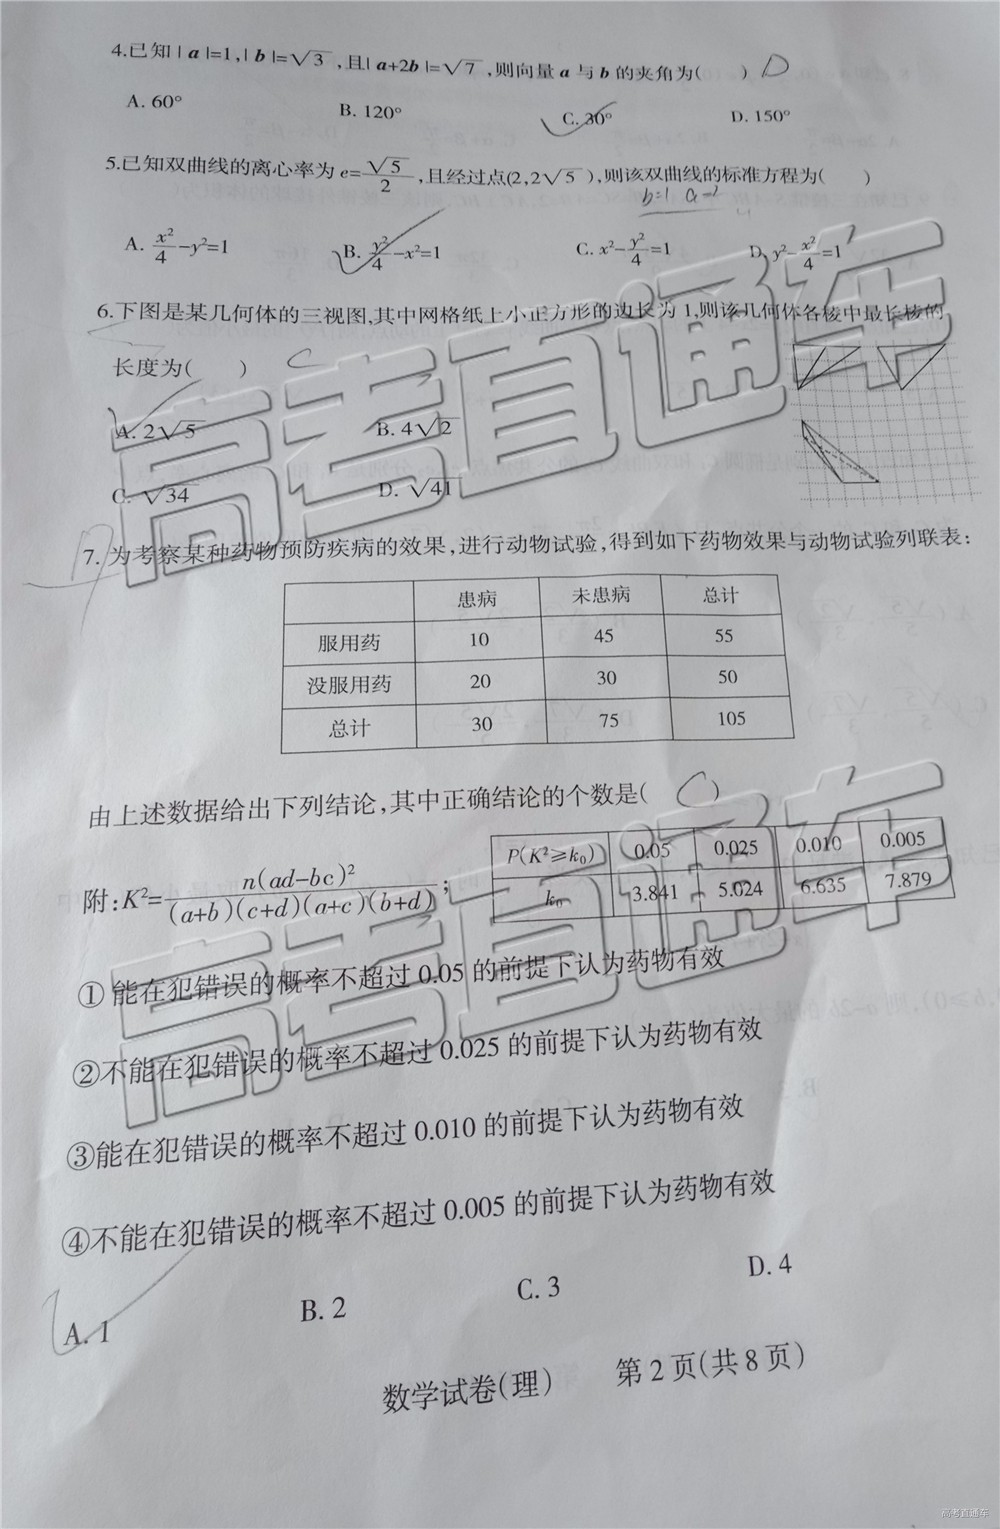 4.已知|a|=1,|b|=√3,且|a+2b|=√7,则向量a与b的夹角为( ) D
A. 60° B. 120° C. 30° D. 150°
5.已知双曲线的离心率为e=√5/2,且经过点(2,2√5),则该双曲线的标准方程为( )
b=1 a=2
A. x²/4-y²=1 B. y²/4-x²=1 C. x²-y²/4=1 D. y²-x²/4=1
6.下图是某几何体的三视图,其中网格纸上小正方形的边长为1,则该几何体各棱中最长棱的
长度为( ) C
A. 2√5 B. 4√2
C. √34 D. √41
7. 为考察某种药物预防疾病的效果,进行动物试验,得到如下药物效果与动物试验列联表:
患病 未患病 总计
服用药 10 45 55
没服用药 20 30 50
总计 30 75 105
由上述数据给出下列结论,其中正确结论的个数是( C )
附:K²=n(ad-bc)²/(a+b)(c+d)(a+c)(b+d);
P(K²≥k₀) 0.05 0.025 0.010 0.005
k₀ 3.841 5.024 6.635 7.879
①能在犯错误的概率不超过0.05的前提下认为药物有效
②不能在犯错误的概率不超过0.025的前提下认为药物有效
③能在犯错误的概率不超过0.010的前提下认为药物有效
④不能在犯错误的概率不超过0.005的前提下认为药物有效
A. 1 B. 2 C. 3 D. 4
数学试卷(理) 第2页(共8页)
高考直通车
高考直通车
高考直通车